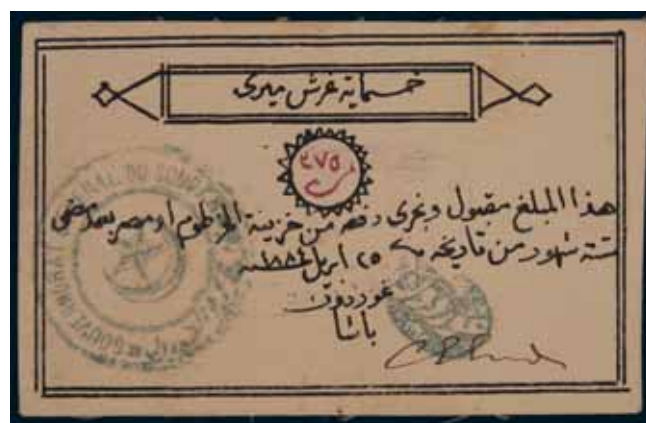 خمسماية غرش ميرى
٤٧٥
هذا المبلغ مقبول ويجرى دفعه من خزينة الخرطوم او مصر بعد مضى
ستة شهور من تاريخه ٢٥ ابريل ١٨٨٤ سنه
غوردون
باشا
RAL DU SOUD
GOUVE